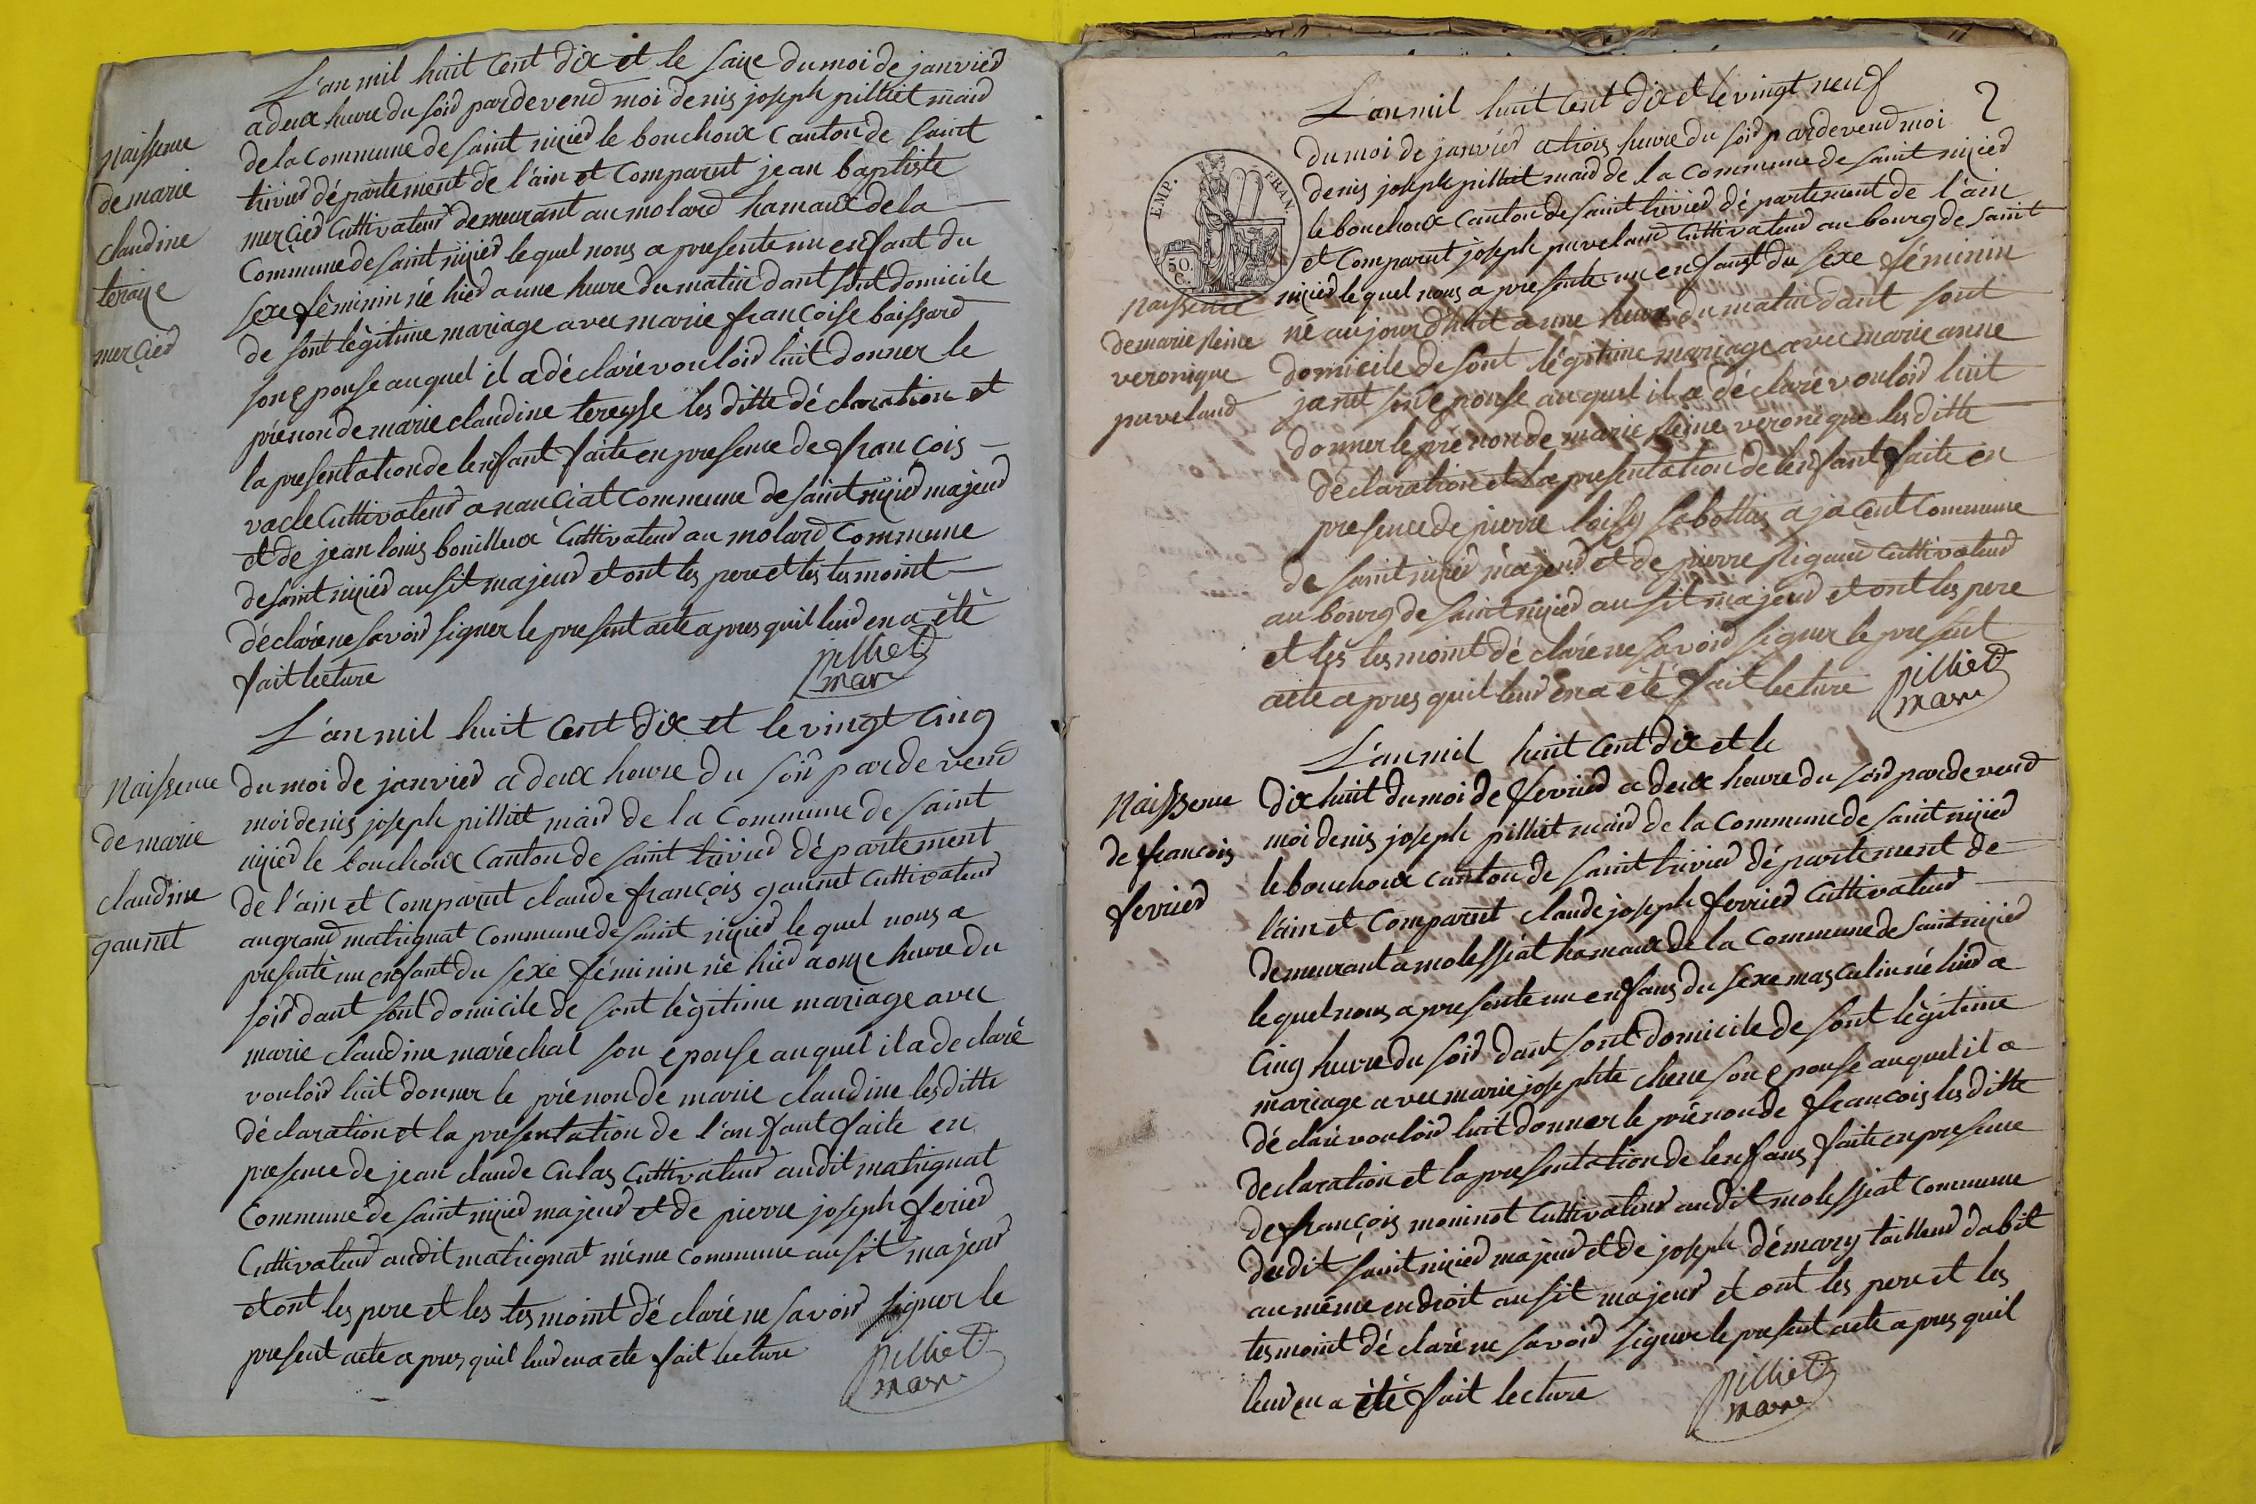 L'an mil huit cent dix et le saize du moi de janvier
a deux heure du soir pardevend moi denis joseph pilliet mair
de la Commune de saint nizier le bouchoux Canton de saint
trivier département de l'ain et Comparut jean baptiste
mercier Cultivateur demeurant au molard hamaux de la
Commune de saint nizier le quel nous a presente un enfant du
sexe féminin né hier a une heure du matin dant sont domicile
de sont légitime mariage avec marie françoise baissard
son epouse au quel il a déclaré vouloir luit donner le
prénon de marie claudine tereyse les ditte déclaration et
la presentation de lenfant faite en presence de françois
vacle Cultivateur a nanciat Commune de saint nizier majeur
et de jean louis bouilloux Cultivateur au molard Commune
de saint nizier ausit majeur et ont les pere et les tesmoint
déclaré ne savoir signer le present acte apres quil leur en a été
fait lecture
pilliet
mair
Naissence
de marie
claudine
teraize
mercier
L'an mil huit Cent dix et le vingt Cinq
du moi de janvier a deux heure du soir pardevend
moi denis joseph pilliet mair de la Commune de saint
nizier le bouchoux Canton de saint trivier département
de l'ain et Comparut claude françois gaunet Cultivateur
au grand matrignat Commune de saint nizier le quel nous a
presenté un enfant du sexe féminin né hier a onze heure du
soir dant sont domicile de sont légitime mariage avec
marie claudine maréchal son epouse au quel il a declaré
vouloir luit donner le prénon de marie claudine les ditte
déclaration et la presentation de l'anfant faite en
presence de jean claude Culas Cultivateur audit matrignat
Commune de saint nizier majeur et de pierre joseph ferier
Cultivateur audit matrignat méme commune ausit majeur
et ont les pere et les tesmoint déclaré ne savoir signer le
present acte apres quil leur en a ete fait lecture
pilliet
mair
Naissence
de marie
claudine
gaunet
2
L'an mil huit Cent dix et le vingt neuf
du moi de janvier a trois heure du soir pardevend moi
denis joseph pilliet mair de la Commune de saint nizier
le bouchoux Canton de saint trivier département de l'ain
et Comparut joseph puveland Cultivateur au bourg de saint
nizier le quel nous a presente un enfant du sexe féminin
né aujourd'huit a une heure du matin dant sont
domicile de sont légitime mariage avec marie anne
janet son epouse au quel il a déclaré vouloir luit
donner le prénon de marie reine veronique les ditte
déclaration et la presentation de l'enfant faite en
presence de pierre loisy sabottier a jacent Commune
de saint nizier majeur et de pierre rigaud Cultivateur
au bourg de saint nizier ausit majeur et ont les pere
et les tesmoint déclaré ne savoir signer le present
acte apres quil leur en a été fait lecture
pilliet
mair
EMP. FRAN.
50.
C.
Naissence
de marie reine
veronique
puveland
L'an mil huit Cent dix et le
dix huit du moi de fevrier a deux heure du soir pardevend
moi denis joseph pilliet mair de la Commune de saint nizier
le bouchoux canton de saint trivier département de
l'ain et Comparut claude joseph fevrier Cultivateur
demeurant a molessiat hamaux de la Commune de saint nizier
le quel nous a presente un enfans du sexe masculin né hier a
Cinq heure du soir dant sont domicile de sont légitime
mariage avec marie josephte chene son epouse au quel il a
déclaré vouloir luit donner le prénon de françois les ditte
declaration et la presentation de lenfans faite en presence
de françois moninot Cultivateur audit molessiat Commune
dudit saint nizier majeur et de joseph démary tailleur dabit
au méme endroit ausit majeur et ont les pere et les
tesmoint déclaré ne savoir signer le present acte apres quil
leur en a été fait lecture
pilliet
mair
Naissence
de francois
fevrier